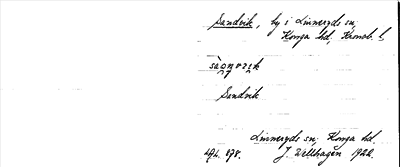 Sandvik, by i Linneryds sn,
Konga hd, Kronob. l,
Sandvik
Linneryds sn, Konga hd.
J. Welthagen 1922.